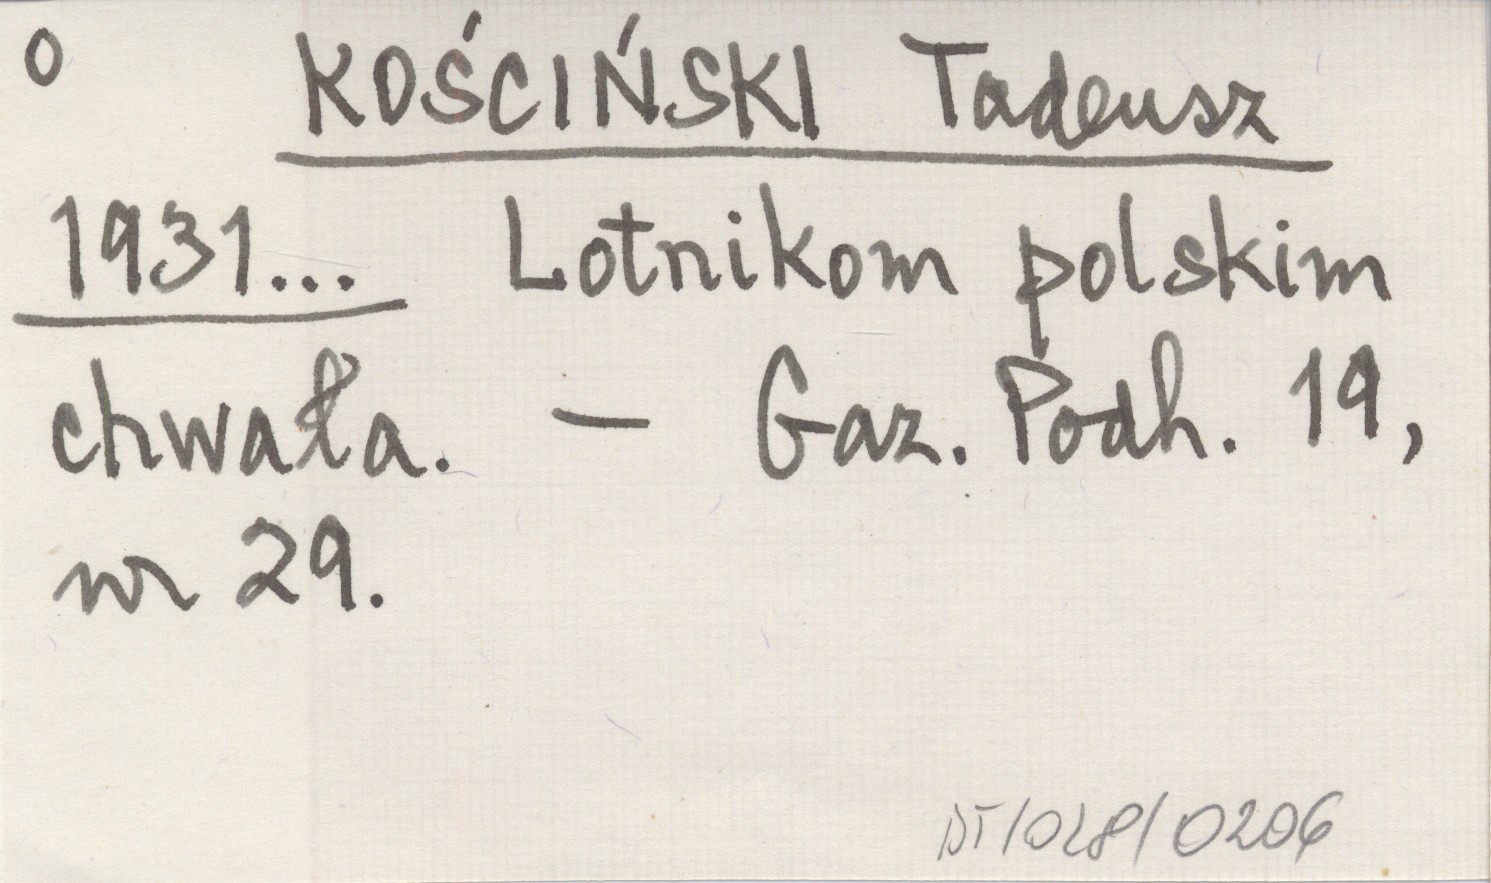 o KOŚCIŃSKI Tadeusz
1931... Lotnikom polskim
chwała. — Gaz. Podh. 19,
nr 29.
DT/028/0206